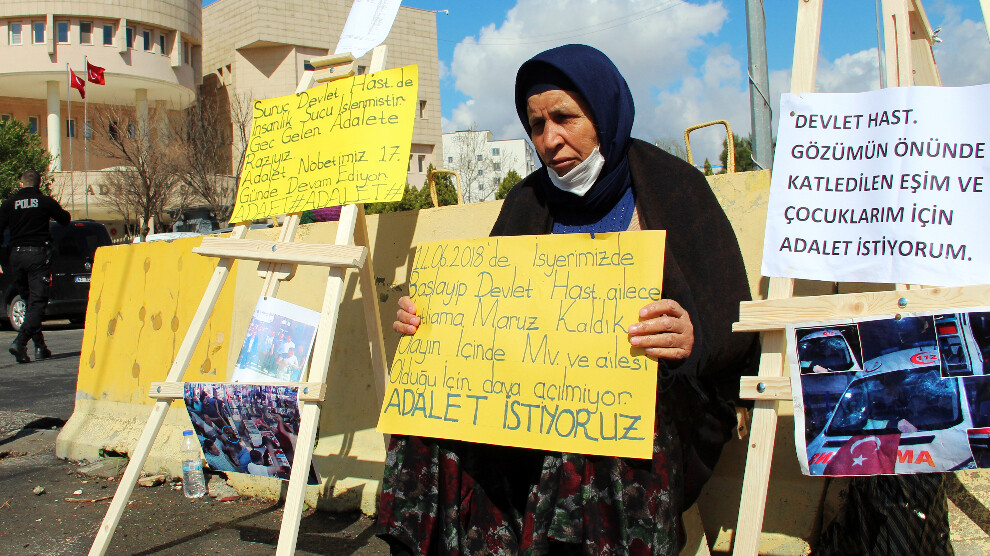 POLIS
Suruç Devlet Hast. de
İnsanlık Suçu İşlenmiştir
Geç Gelen Adalete
Razıyız
Adalet Nöbetimiz 17.
Günde Devam Ediyor
ADALET#ADALET#
.06.2018'de İşyerimizde
Başlayıp Devlet Hast. ailece
Maruz Kaldık
Olayın İçinde Mv. ve ailesi
Olduğu İçin dava açılmıyor
ADALET İSTİYORUZ
DEVLET HAST.
GÖZÜMÜN ÖNÜNDE
KATLEDİLEN EŞİM VE
ÇOCUKLARIM İÇİN
ADALET İSTİYORUM.
112